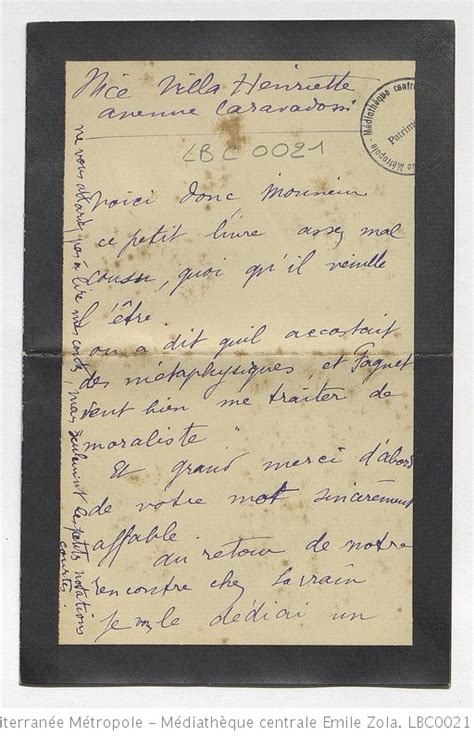 Nice Villa Henriette
avenue Caravadossi
LBC 0021
voici donc Monsieur
ce petit livre assez mal
cousu, quoi qu'il veuille
l'être.
on a dit qu'il accostait
des métaphysiques, et Faguet
veut bien me traiter de
moraliste "
Et grand merci d'abord
de votre mot sincèrement
affable.
au retour de notre
rencontre chez Lorrain
je vous le dédiai un
ne vous attardez pas à lire mes , mais seulement les petites notations
courtes.
Médiathèque centrale
Patrimoine
Métropole
iterranée Métropole – Médiathèque centrale Emile Zola. LBC0021